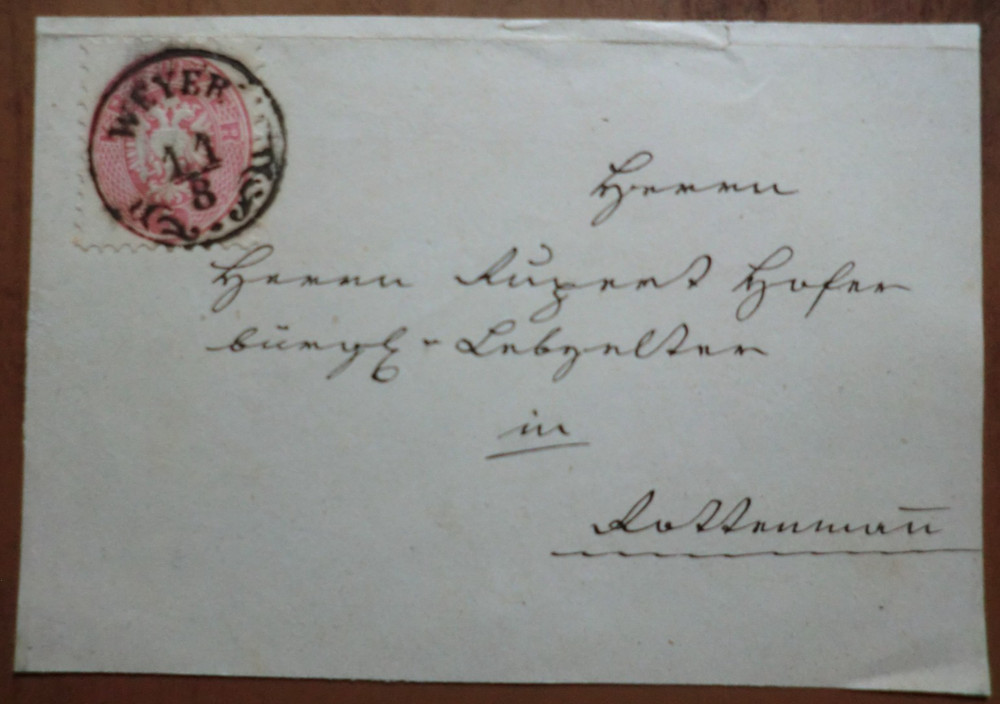 WEYER
11
8
Herrn
Herrn Rupert Hofer
bürgl. Lebzelter
in
Rottenmañ